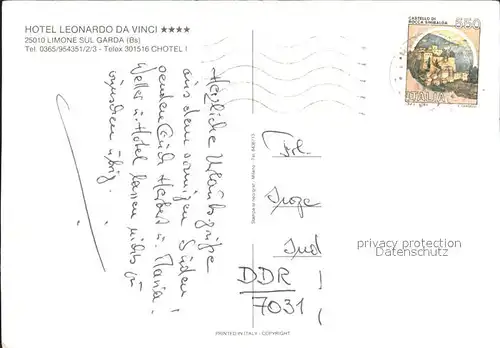 HOTEL LEONARDO DA VINCI ★★★★
25010 LIMONE SUL GARDA (Bs)
Tel. 0365/954351/2/3 - Telex 301516 CHOTEL I
CASTELLO DI
ROCCA SINIBALDA
550
ITALIA
Herzliche Urlaubsgrüße
aus dem sonnigen Süden!
senden Euch Herbert u. Maria!
Wetter u. Hotel lassen nichts zu
wünschen übrig.
Frl.
Inge
DDR
7031
privacy protection
Datenschutz
PRINTED IN ITALY - COPYRIGHT